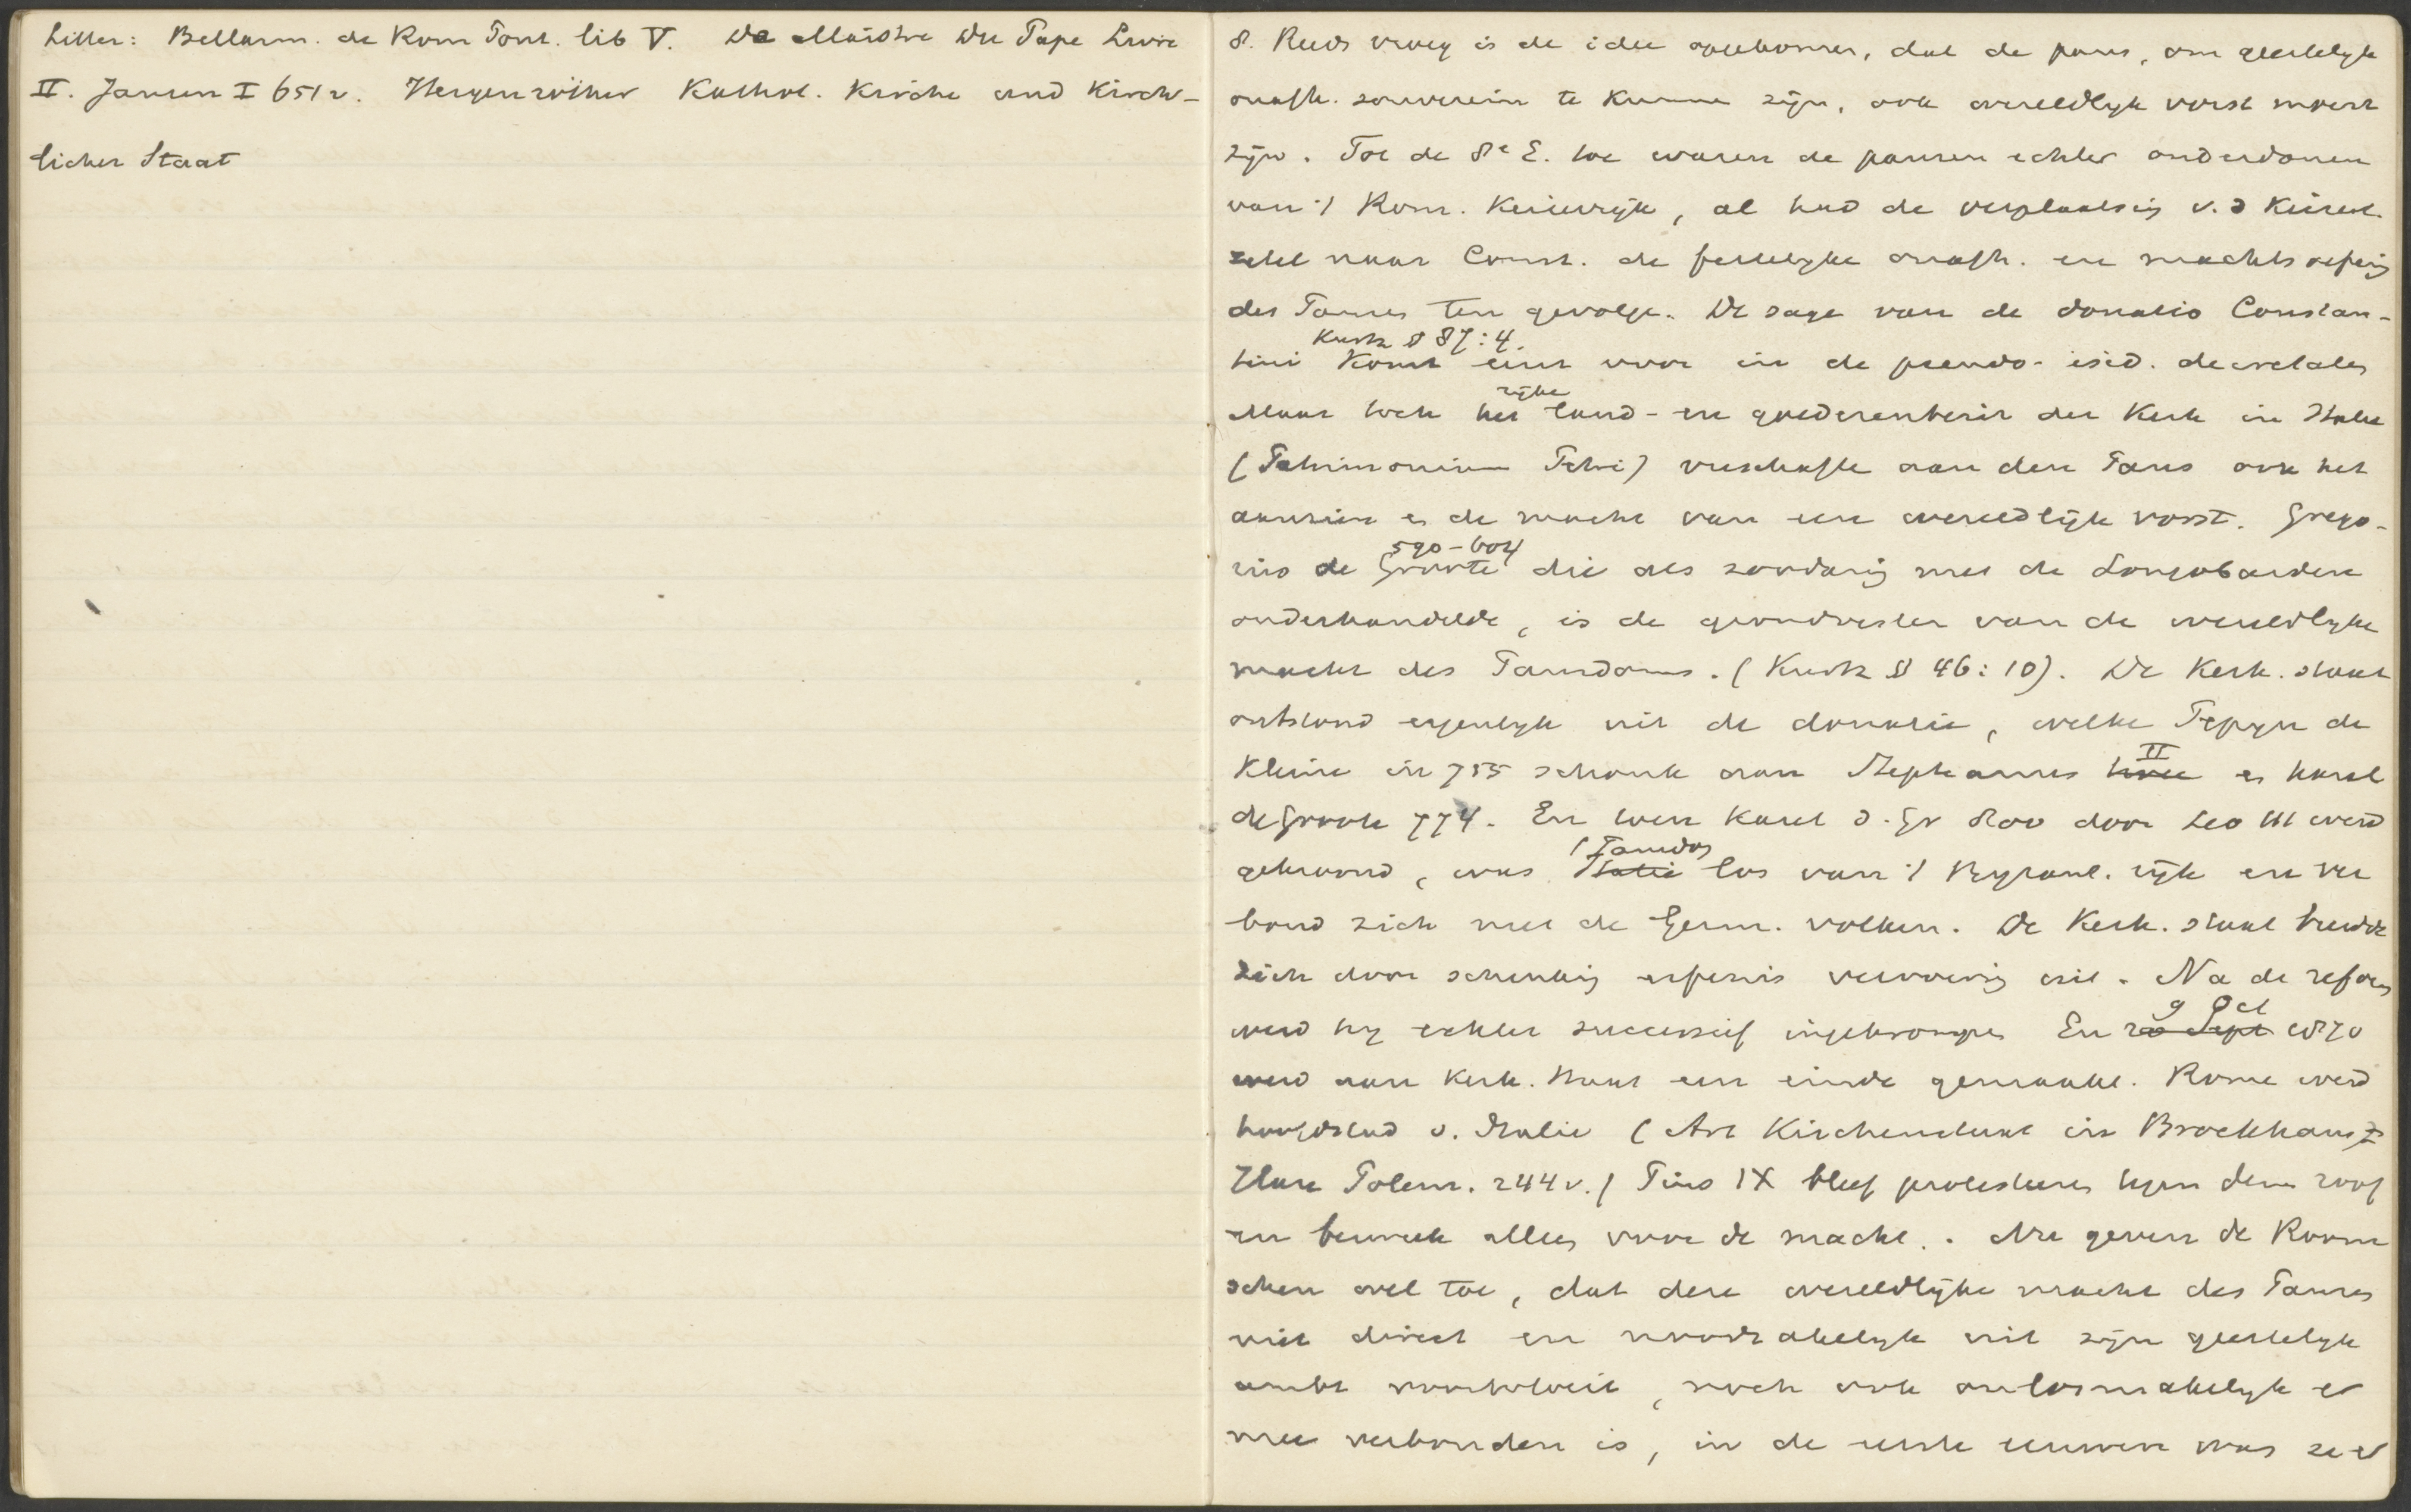 Litter: Bellarm. de Rom Pont. lib V. De Maistre Du Pape Livre
II. Jansen I 651v. Hergenröther Kathol. Kirche und Kirch-
licher Staat
8. Reeds vroeg is de idee opgekomen, dat de paus, om geestelyk
onafh. souverein te kunnen zijn, ook wereldlyk vorst moest
zijn. Tot de 8e E. toe waren de pausen echter onderdanen
van 't Rom. Keizerrijk, al had de verplaatsing v. d Keizerl.
zetel naar Const. de feitelyke onafh. en machtsoefening
des Pauses ten gevolge. De sage van de donatio Constan-
Kurtz § 87:4.
tini komt eerst voor in de pseudo-isid. decretales
rijke
Maar toch het land- en goederenbezit der Kerk in Italie
(Patrimonium Petri) verschafte aan den Paus ook het
aanzien en de macht van een wereldlijk vorst. Grego-
590-604
rius de Groote die als zoodanig met de Longobarden
onderhandelde, is de grondvester van de wereldlyke
macht des Pausdoms. (Kurtz § 46:10). De Kerk. staat
ontstond eigenlyk uit de donatie, welke Pepyn de
II
Kleine in 755 schonk aan Stephanus en Karel
de Groote 774. En toen Karel d. Gr 800 door Leo III werd
't Pausdom
gekroond, was Italie los van 't Byzant. rijk en ver
bond zich met de Germ. volken. De Kerk. staat breidde
zich door schenking erfenis verovering uit. Na de reform
9 Oct
werd hy echter successief ingekrompen En 20 Sept 1870
werd aan Kerk. staat een einde gemaakt. Rome werd
hoofdstad v. Italie (Art Kirchenstaat in Brockhaus
Hase Polem. 244v.) Pius IX bleef protesteren tegen dien roof
en bewerkte alles voor de macht. Nu geven de Room
schen wel toe, dat deze wereldlijke macht des Pauses
niet direct en noodzakelyk uit zijn geestelyk
ambt voortvloeit, noch ook onlosmakelyk er
mee verbonden is, in de eerste eeuwen was ze er